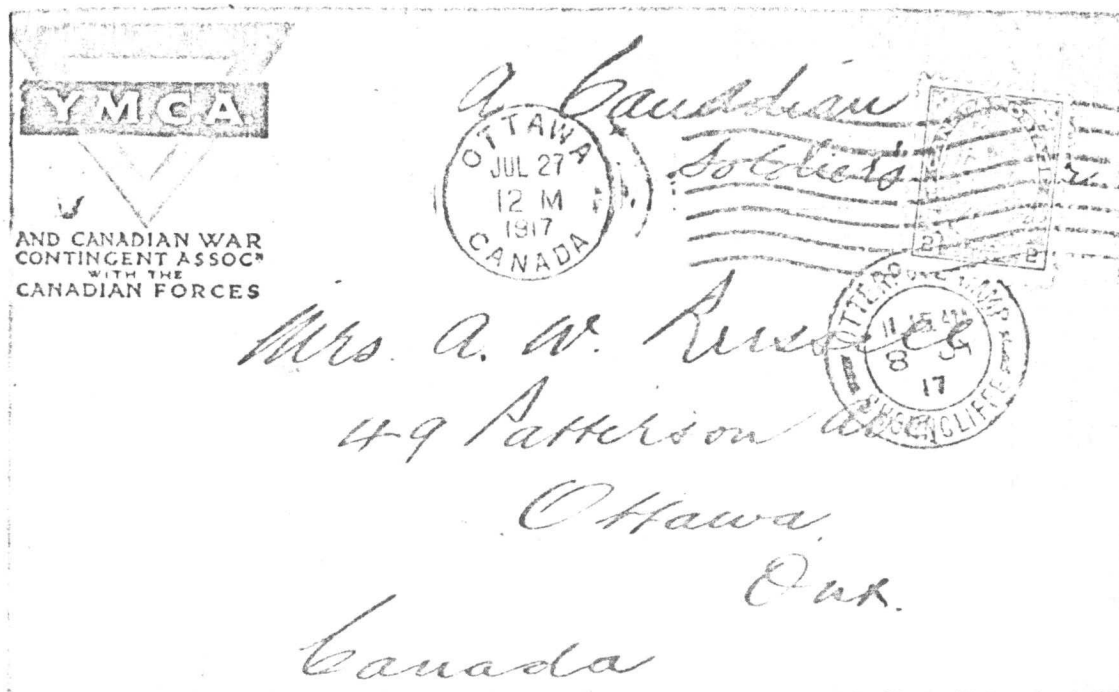 YMCA
AND CANADIAN WAR
CONTINGENT ASSOCN
WITH THE
CANADIAN FORCES
a Canadian
Soldier's
OTTAWA
JUL 27
12 M
1917
CANADA
OTTERPOOL CAMP
8 JY
17
Mrs. A. W. Russell
49 Patterson Ave
Ottawa
Ont.
Canada